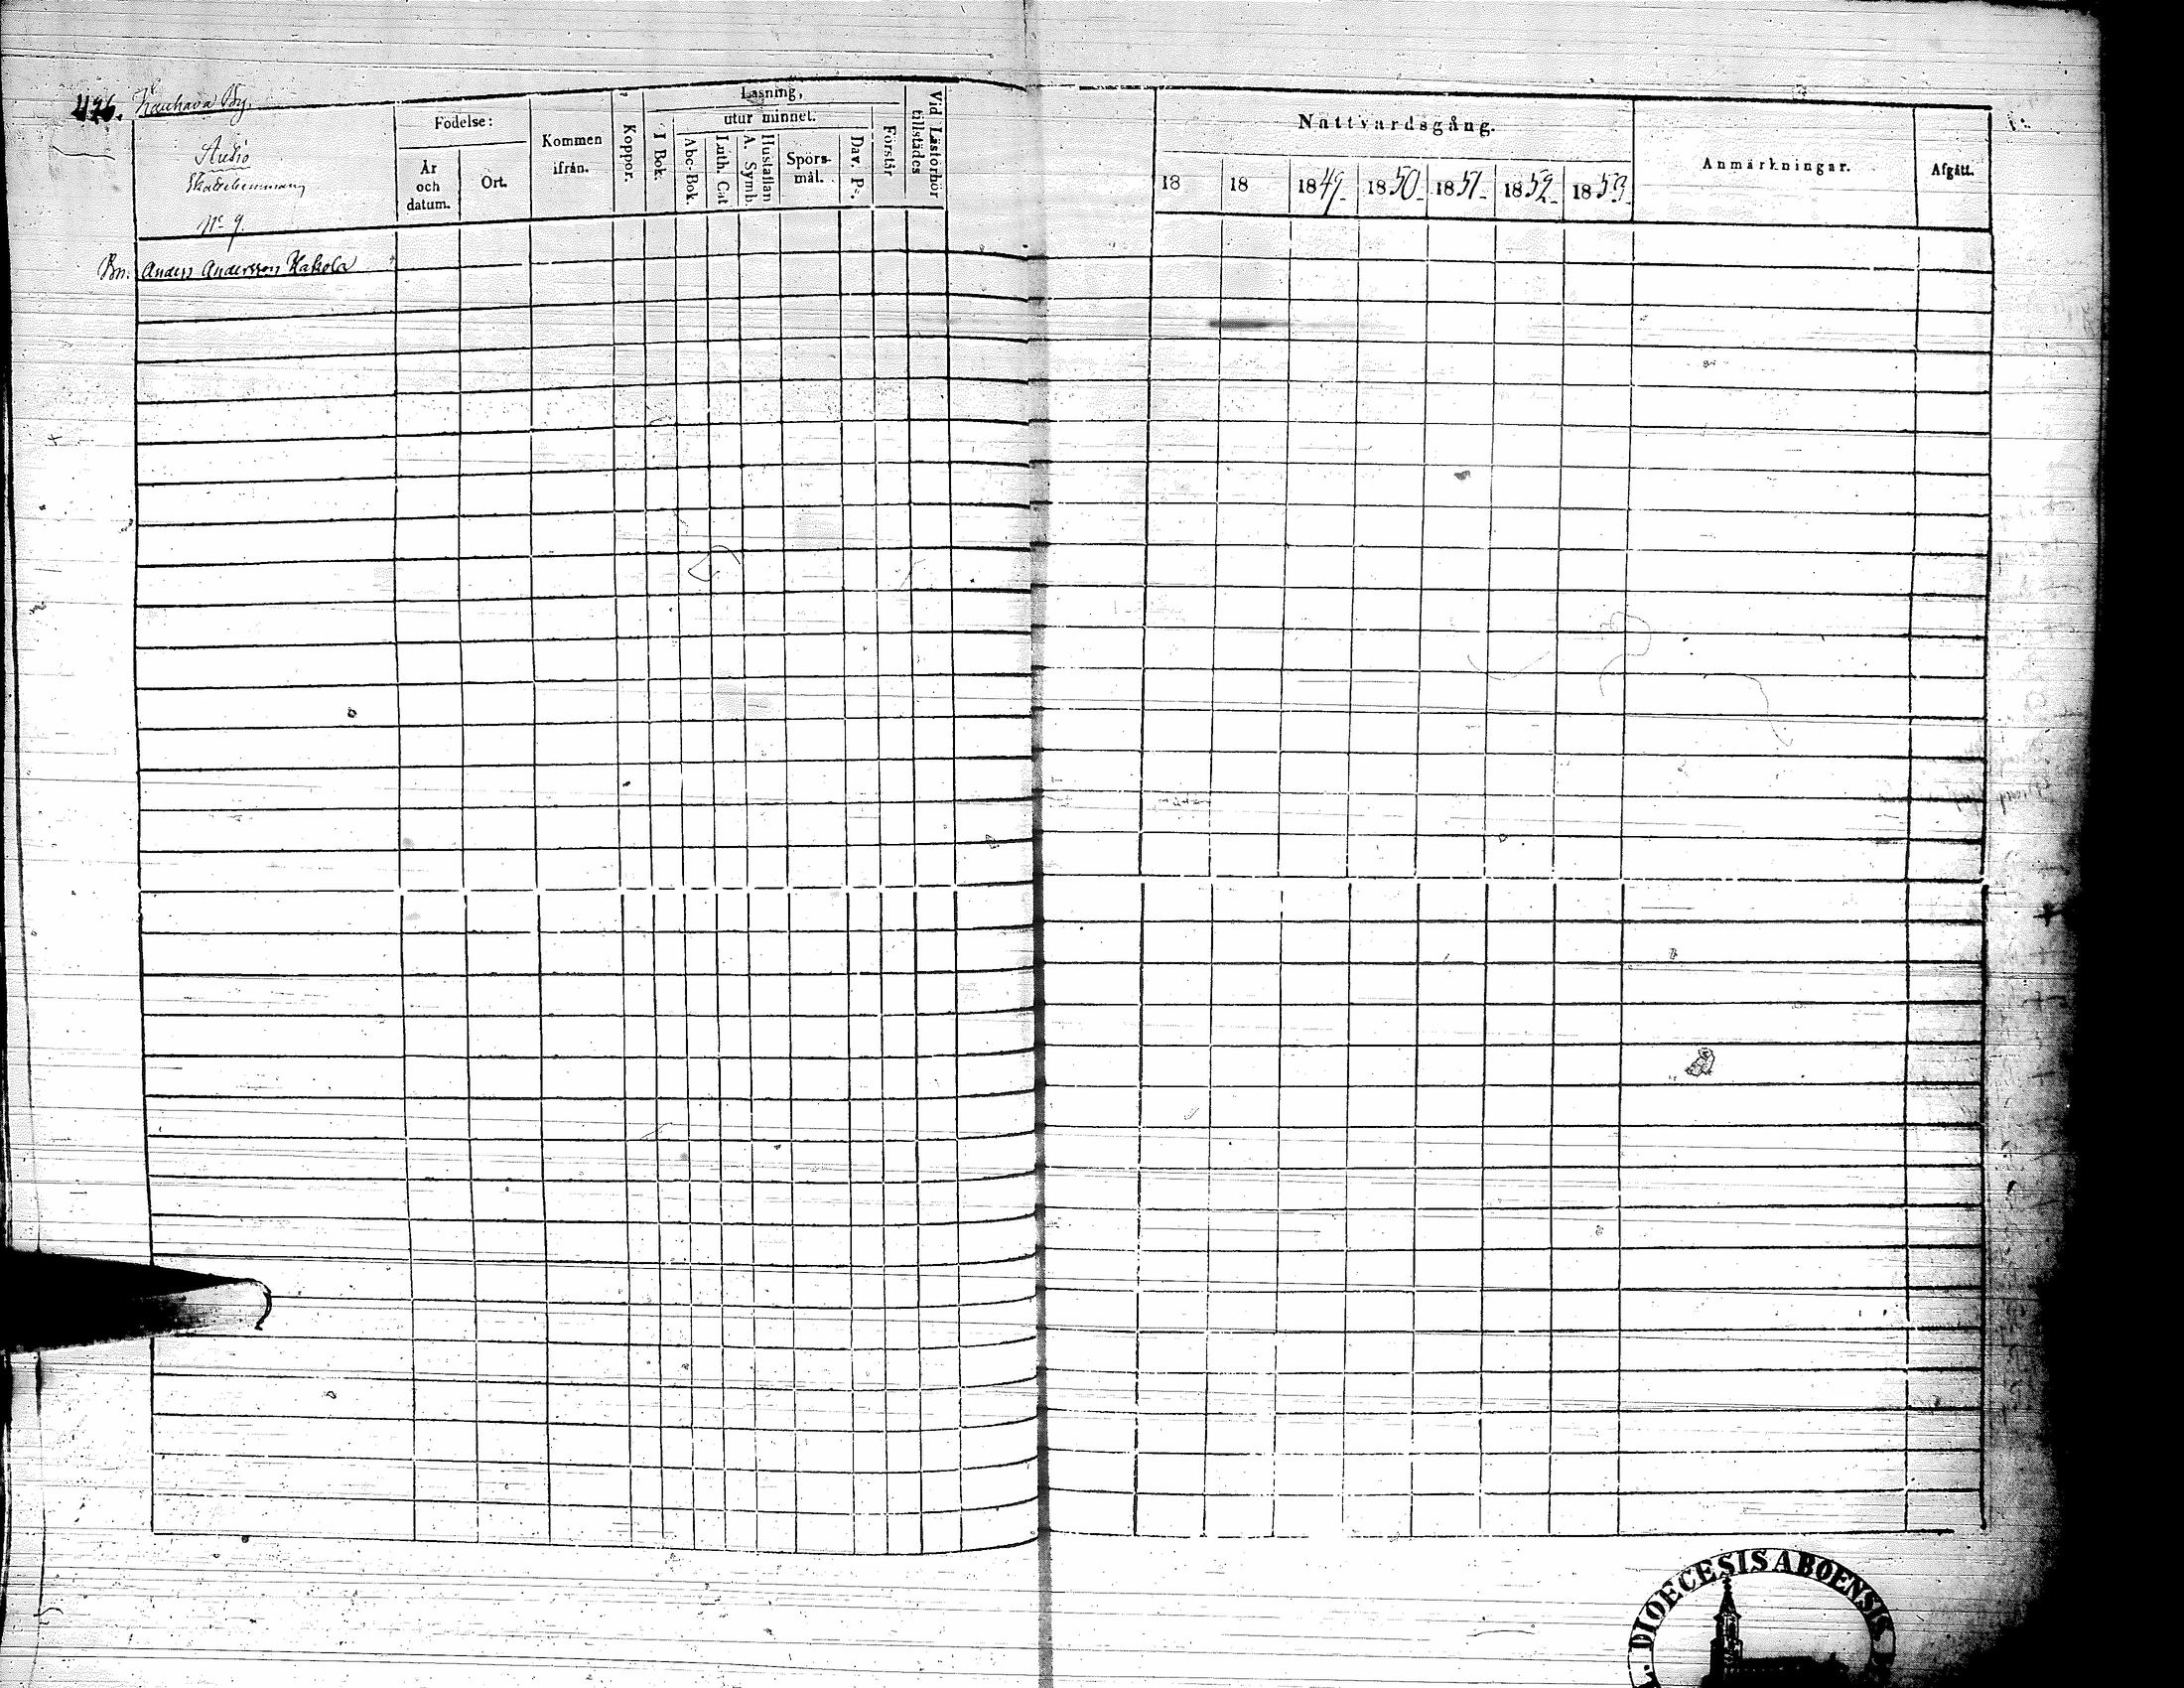 426. Kauhava By.
Skattehemman
No 9.
Födelse:
År
och
datum.
Ort.
Kommen
ifrån.
Koppor.
Läsning,
I Bok.
utur minnet.
Abc-Bok.
Luth. Cat
A. Symb.
Hustaflan
Spörs-
mål.
Dav. Ps.
Förstår
Vid Läsförhör
tillstädes
Bn. Anders Andersson Kakola
Nattvardsgång.
18
18
1849
1850
1851
1852
1853
Anmärkningar.
Afgått.
DIOECESIS ABOENSIS